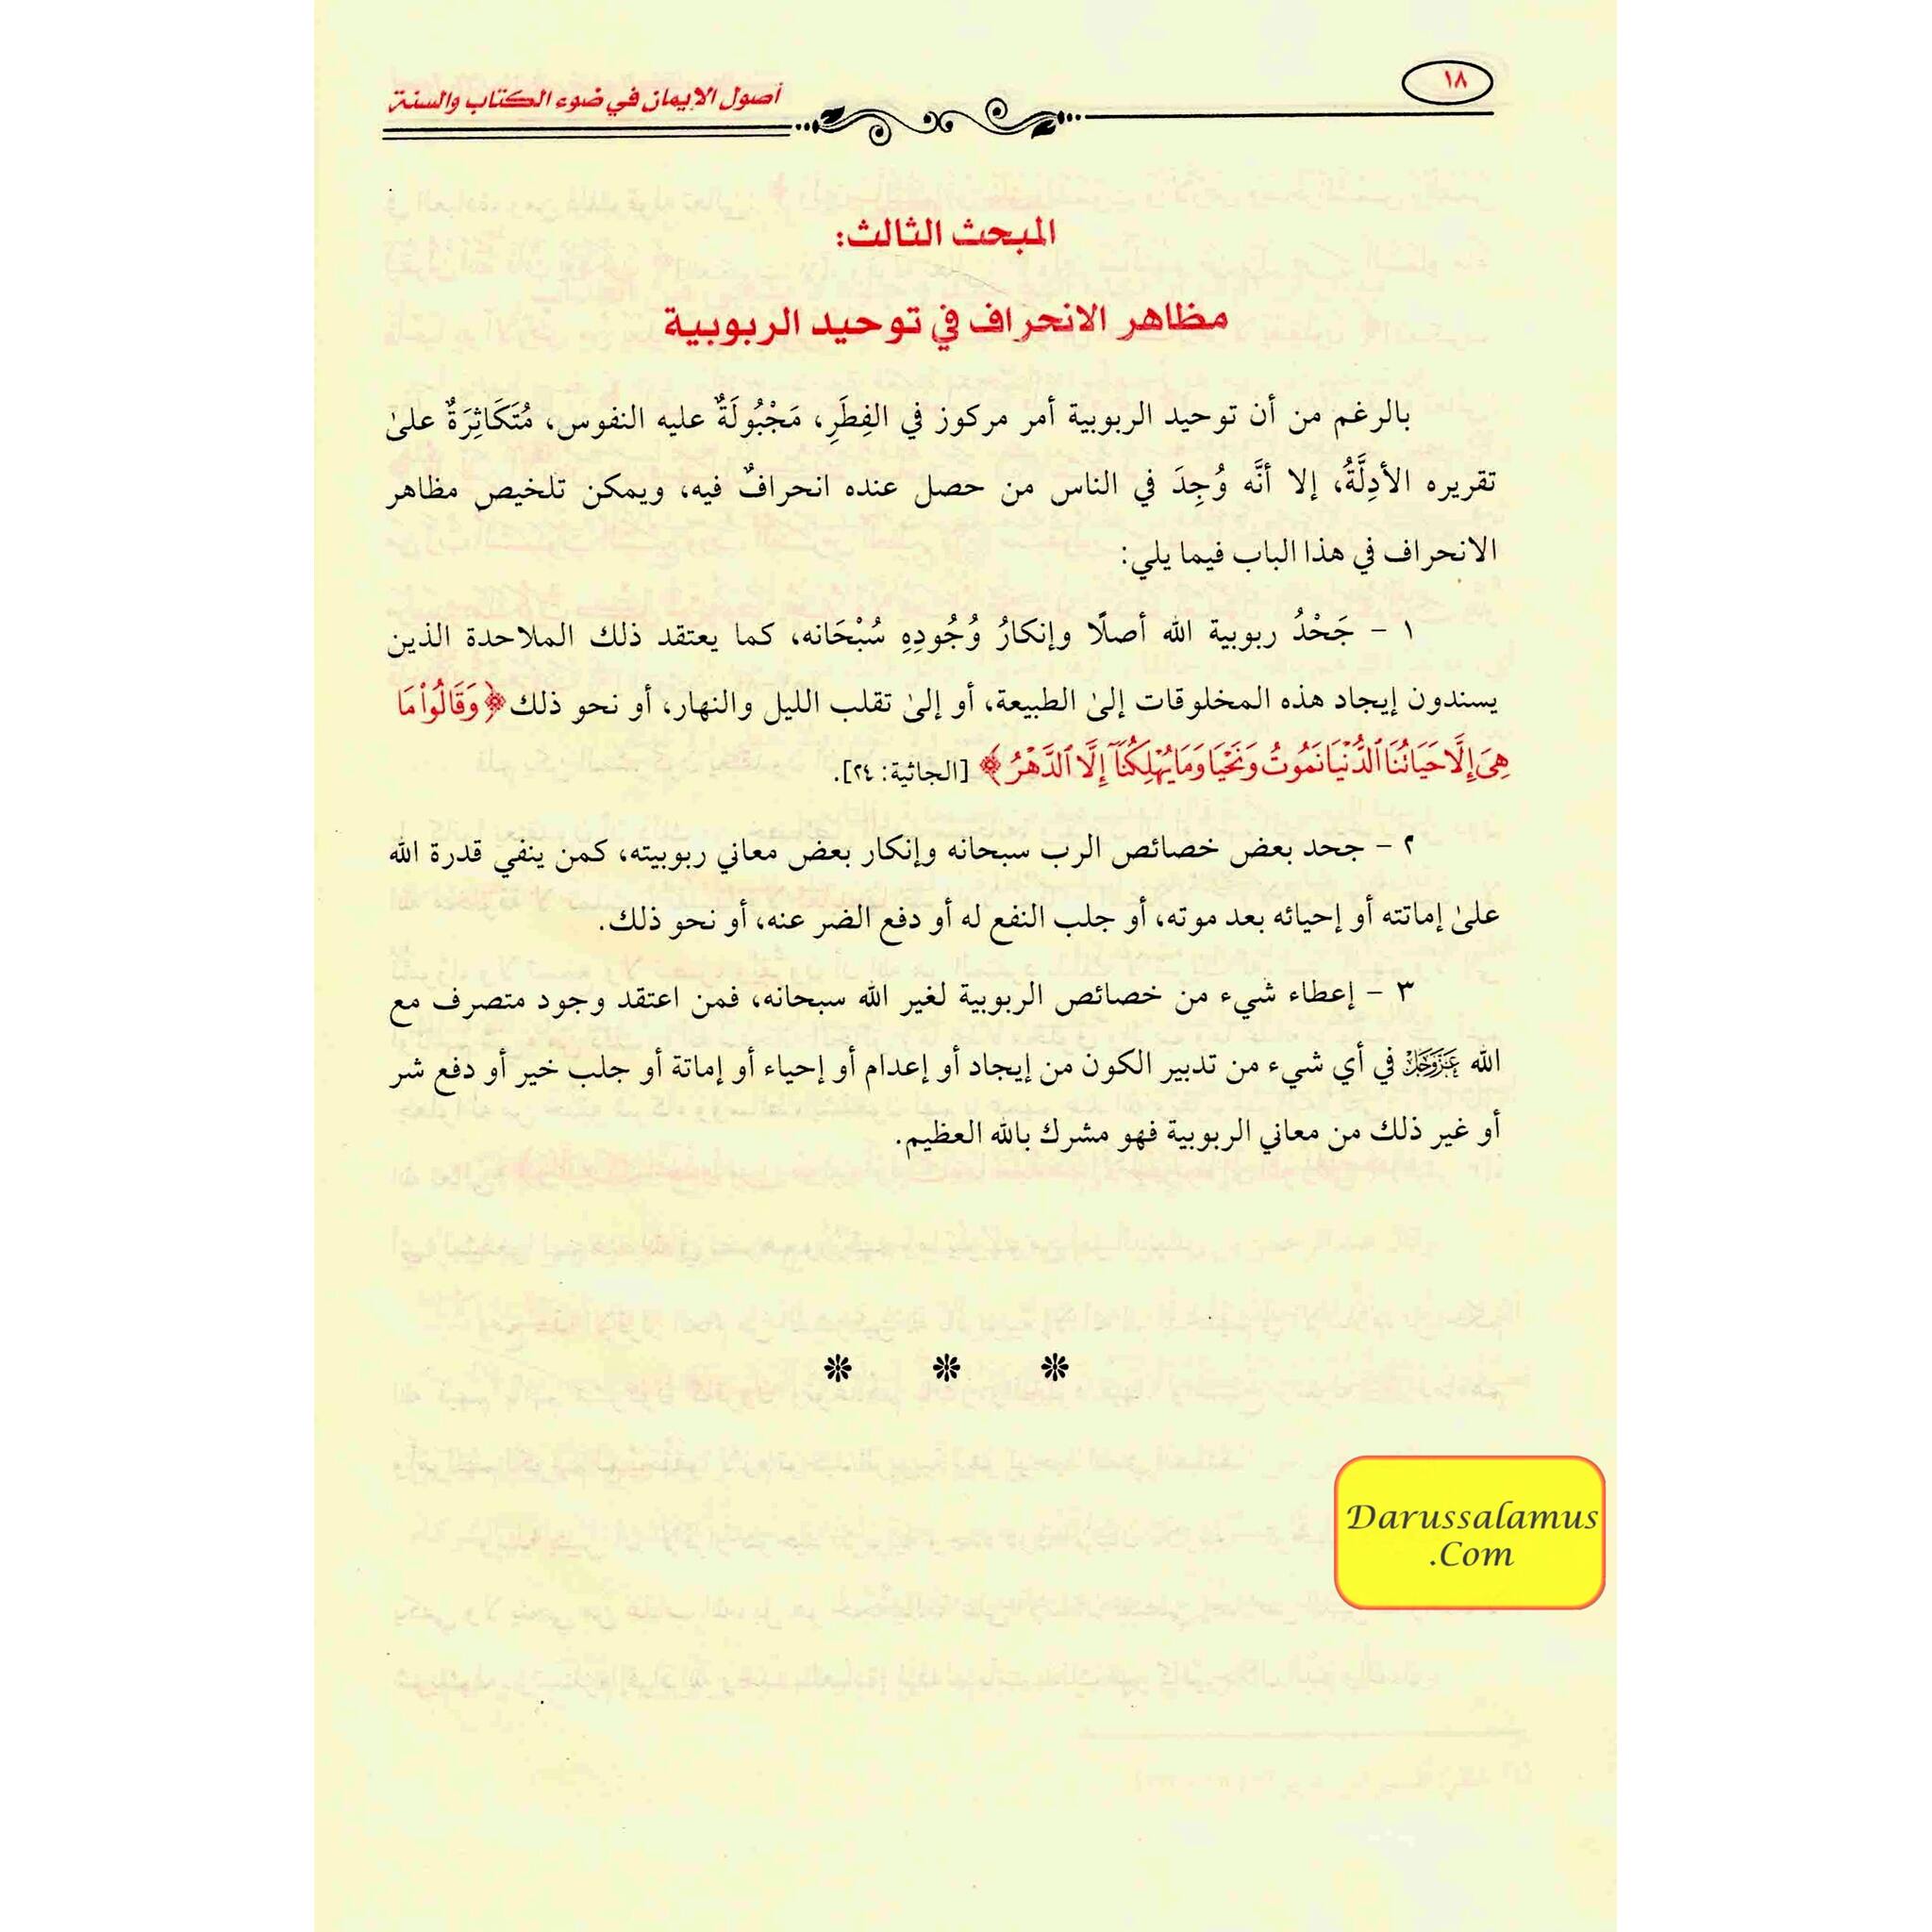 ١٨
أصول الإيمان في ضوء الكتاب والسنة
المبحث الثالث:
مظاهر الانحراف في توحيد الربوبية
بالرغم من أن توحيد الربوبية أمر مركوز في الفِطَرِ، مَجْبُولَةٌ عليه النفوس، مُتَكَاثِرَةٌ علىٰ
تقريره الأدِلَّةُ، إلا أنَّه وُجِدَ في الناس من حصل عنده انحرافٌ فيه، ويمكن تلخيص مظاهر
الانحراف في هذا الباب فيما يلي:
١ - جَحْدُ ربوبية الله أصلًا وإنكارُ وُجُودِهِ سُبْحَانه، كما يعتقد ذلك الملاحدة الذين
يسندون إيجاد هذه المخلوقات إلىٰ الطبيعة، أو إلىٰ تقلب الليل والنهار، أو نحو ذلك ﴿وَقَالُوا۟ مَا
هِىَ إِلَّا حَيَاتُنَا ٱلدُّنْيَا نَمُوتُ وَنَحْيَا وَمَا يُهْلِكُنَآ إِلَّا ٱلدَّهْرُ﴾ [الجاثية: ٢٤].
٢ - جحد بعض خصائص الرب سبحانه وإنكار بعض معاني ربوبيته، كمن ينفي قدرة الله
علىٰ إماتته أو إحيائه بعد موته، أو جلب النفع له أو دفع الضر عنه، أو نحو ذلك.
٣ - إعطاء شيء من خصائص الربوبية لغير الله سبحانه، فمن اعتقد وجود متصرف مع
الله عَزَّوَجَلَّ في أي شيء من تدبير الكون من إيجاد أو إعدام أو إحياء أو إماتة أو جلب خير أو دفع شر
أو غير ذلك من معاني الربوبية فهو مشرك بالله العظيم.
Darussalamus
.Com